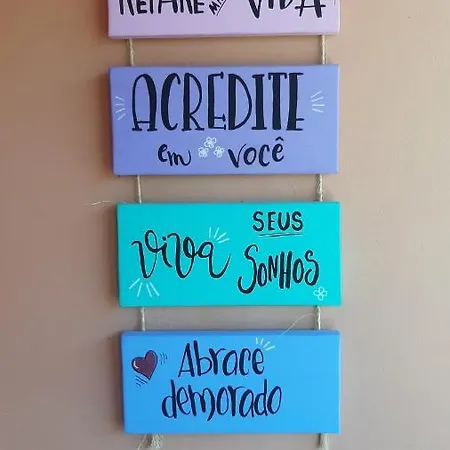 VIDA
ACREDITE
em você
viva SEUS
SONHOS
Abrace
demorado